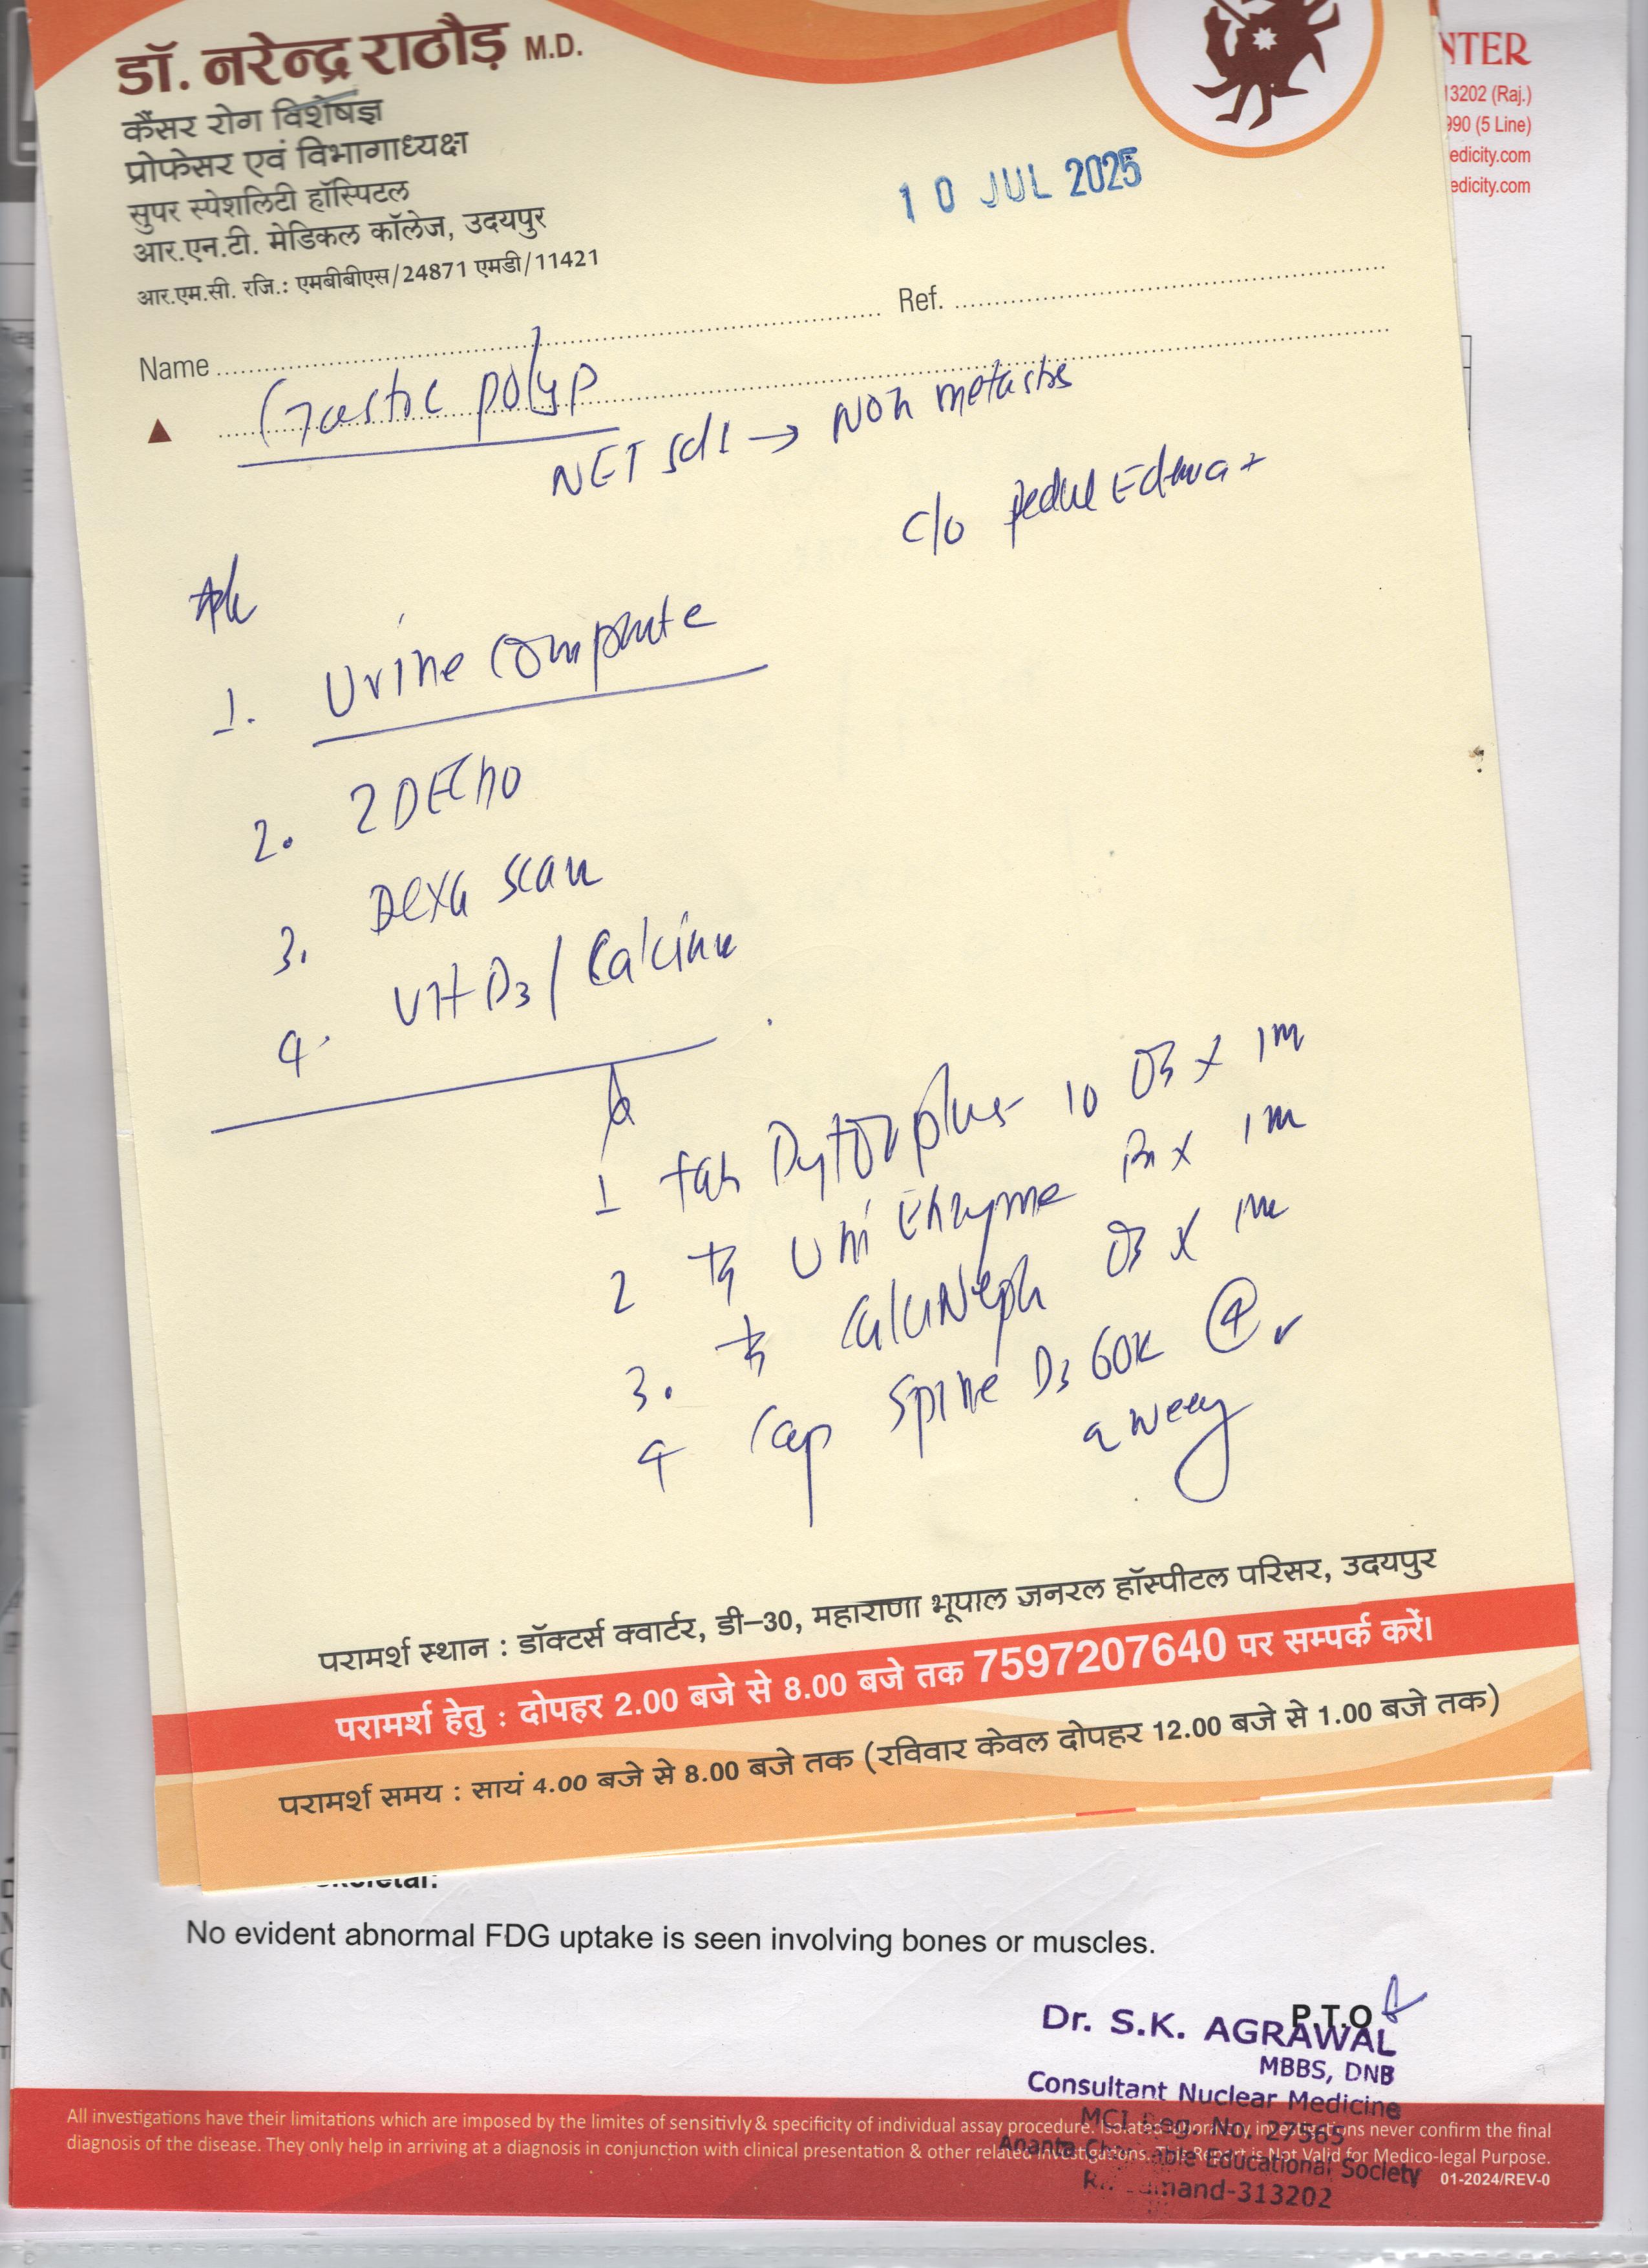 डॉ. नरेन्द्र राठौड़ M.D.
कैंसर रोग विशेषज्ञ
प्रोफेसर एवं विभागाध्यक्ष
सुपर स्पेशलिटी हॉस्पिटल
आर.एन.टी. मेडिकल कॉलेज, उदयपुर
आर.एम.सी. रजि.: एमबीबीएस/24871 एमडी/11421
NTER
13202 (Raj.)
990 (5 Line)
edicity.com
edicity.com
10 JUL 2025
Name Ref.
Gastric polyp
NET → Non metastas
c/o pedal Edema +
1. Urine Complete
2. 2D Echo
3. Dexa Scan
4. Vit D3 / Calcium
1 Tab Dytor plus 10 OD x 1m
2 Uni Enzyme x 1m
3. OD x 1m
4 Cap Spine D3 60K 4
a week
परामर्श स्थान : डॉक्टर्स क्वार्टर, डी-30, महाराणा भूपाल जनरल हॉस्पीटल परिसर, उदयपुर
परामर्श हेतु : दोपहर 2.00 बजे से 8.00 बजे तक 7597207640 पर सम्पर्क करें।
परामर्श समय : सायं 4.00 बजे से 8.00 बजे तक (रविवार केवल दोपहर 12.00 बजे से 1.00 बजे तक)
No evident abnormal FDG uptake is seen involving bones or muscles.
P.T.O
Dr. S.K. AGRAWAL
MBBS, DNB
Consultant Nuclear Medicine
MCI Reg. No. 27565
Ananta Charitable Educational Society
mand-313202
All investigations have their limitations which are imposed by the limites of sensitivly & specificity of individual assay procedure. Isolated laboratory investigations never confirm the final
diagnosis of the disease. They only help in arriving at a diagnosis in conjunction with clinical presentation & other related investigations. This Report is Not Valid for Medico-legal Purpose.
01-2024/REV-0